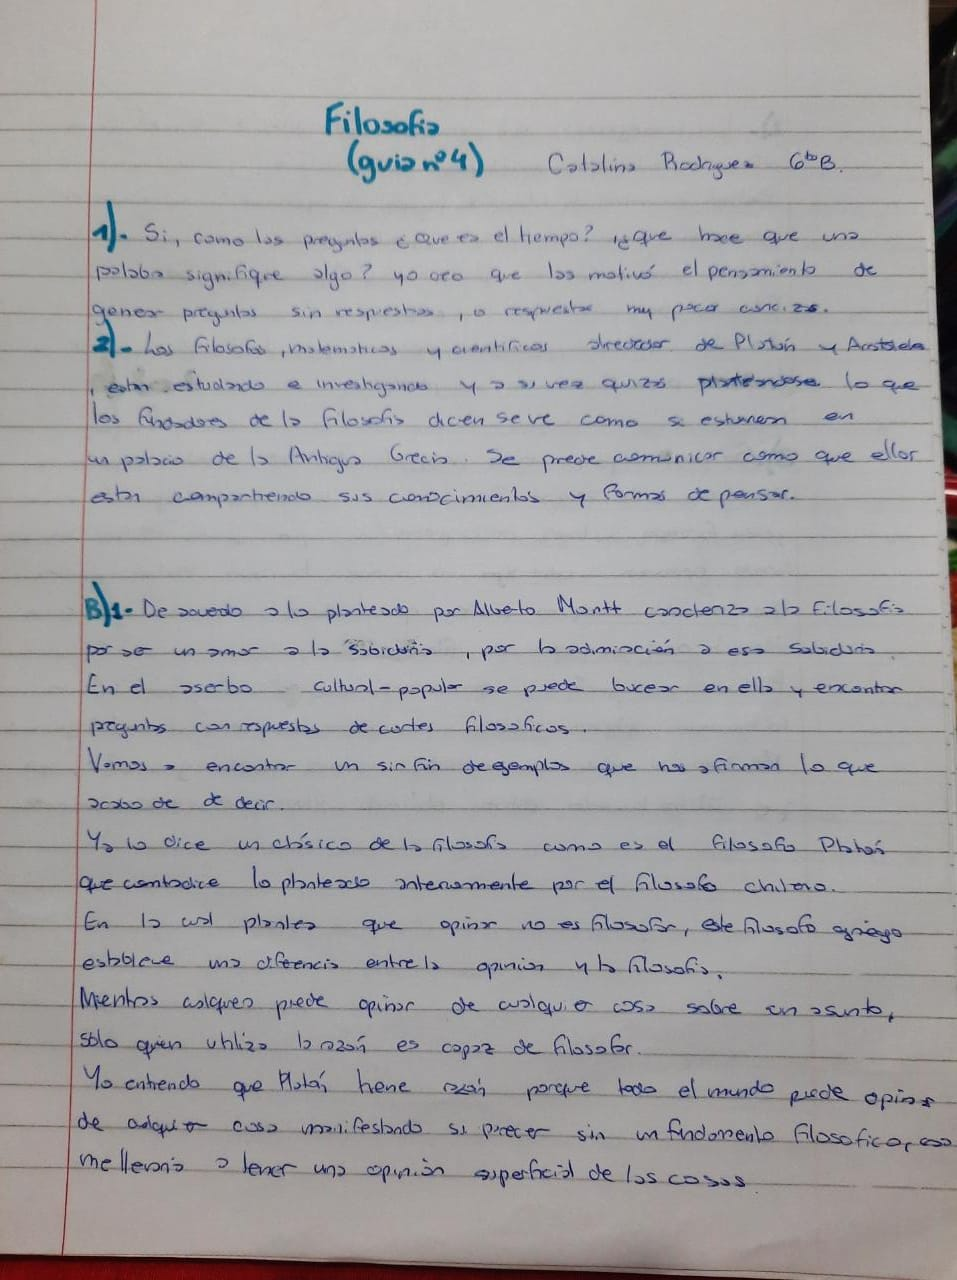 Filosofia
(guia nº4) Catalina Rodriguez 6toB.
1)- Si, como las preguntas ¿Que es el tiempo? ¿que hace que una
palaba signifique algo? yo creo que los motivó el pensamiento de
generar preguntas sin respuestas, o respuestas muy poco concizas.
2)- Los filosofos, matematicos y cientificos alrededor de Platón y Aristoteles
, estan estudiando e investigando y a su vez quizas plateandose lo que
los fundadores de la filosofia dicen se ve como si estuvieran en
un palacio de la Antigua Grecia. Se puede comunicar como que ellos
estan compartiendo sus conocimientos y formas de pensar.
B)1- De acuerdo a lo planteado por Alberto Montt caracteriza a la filosofia
por ser un amor a la sabiduria, por la admiración a esa sabiduria.
En el aserbo cultural-popular se puede bucear en ella y encontrar
preguntas con respuestas de cortes filosoficos.
Vamos a encontrar un sin fin de ejemplos que nos afirman lo que
acabo de de decir.
Ya lo dice un clásico de la filosofia como es el filosofo Platón
que contradice lo planteado anteriormente por el filosofo chileno.
En la cual plantea que opinar no es filosofar, este filosofo griego
establece una diferencia entre la opinion y la filosofia.
Mientras cualquera puede opinar de cualquier cosa sobre un asunto,
sólo quien utiliza la razón es capaz de filosofar.
Yo entiendo que Platón tiene razón porque todo el mundo puede opinar
de cualquier cosa manifestando su parecer sin un fundamento filosofico, eso
me llevaria a tener una opinión superficial de las cosas.